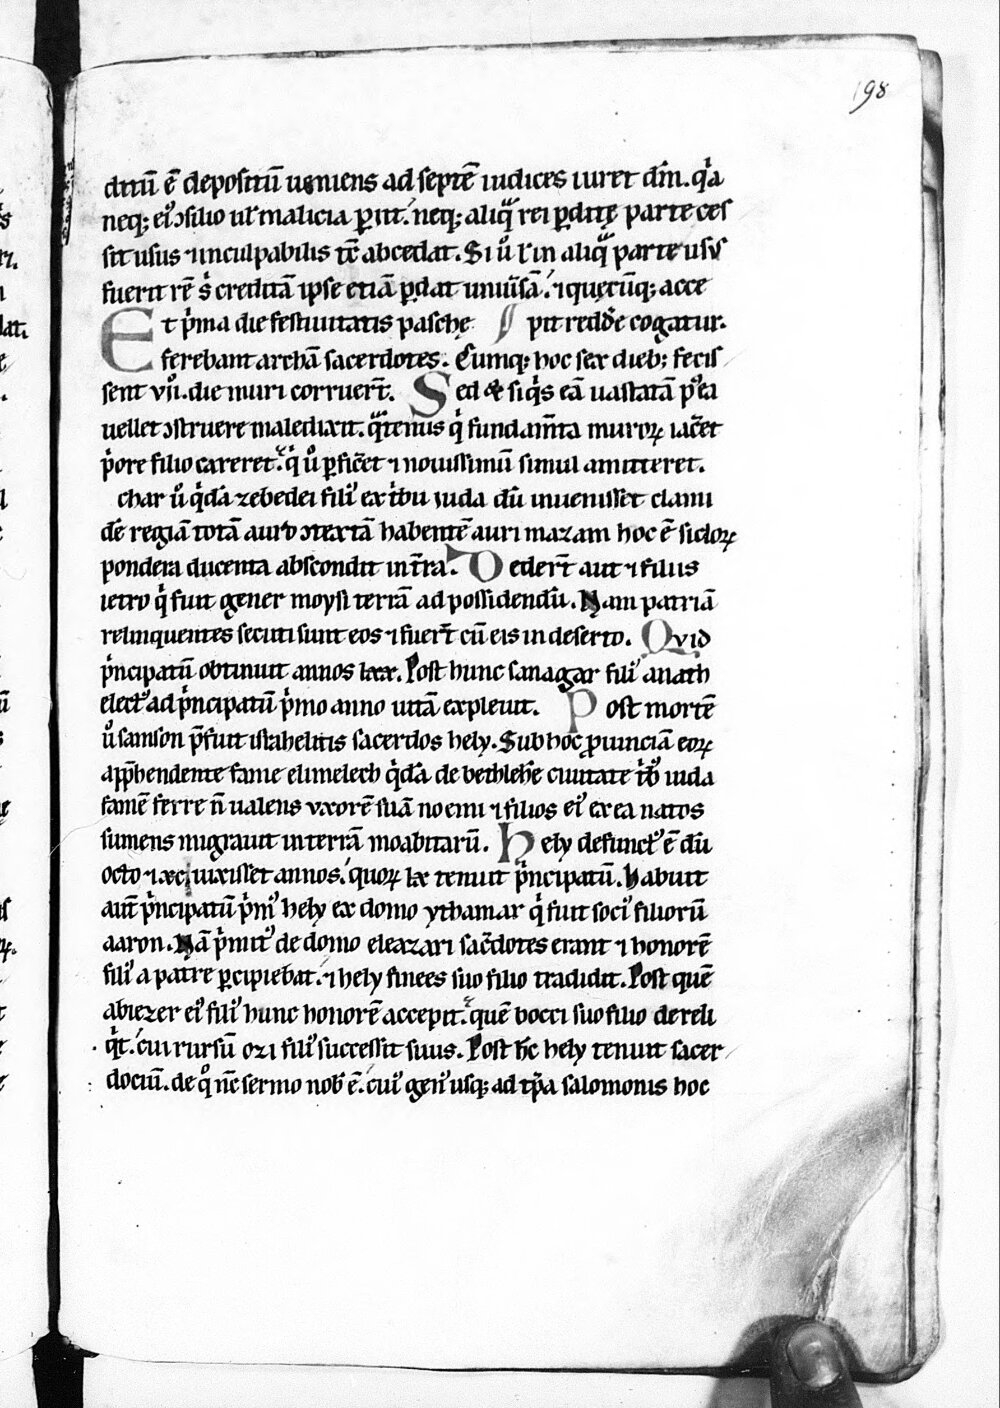 198
ditū ē depositū ueniens ad septē iudices iuret dm̄. qͥa
neq; eiꝰ ɔsilio ul̓ malicia ꝑiit. neq; aliqᷓ rei ꝑditę parte ces
sit usus ⁊ inculpabilis tc̄ abcedat. Si ů l̓ in aliqᷓ parte usus
fuerit rē s̓ creditā ipse etiā ꝑdat uniūsā. ⁊ quęcūq; acce
Et pͥma die festiuitatis paschę pit redde cogatur.
ferebant archā sacerdotes. Cumq; hoc sex dieb; fecis
sent vii. die muri corruer̄t. Sed & siqͥs eā uastatā pꝰea
uellet ɔstruere maledixit. qᷓtenus qͥ fundam̄ta muroꝝ iac̄et
pͥore filio careret. qͥ ů ꝑfic̄et ⁊ nouissimū simul amitteret.
char ů qͥdā zebedei filiꝰ ex tͥbu iuda dū inuenisset clami
dē regiā totā auro ɔtextā habentē auri mazam hoc ē sicloꝝ
pondera ducenta abscondit in t̄ra. Deder̄t aut ⁊ filiis
ietro qͥ fuit gener moysi terrā ad possidendū. Nam patriā
relinquentes secuti sunt eos ⁊ fuer̄t cū eis in deserto. Qvid
pͥncipatū obtinuit annos lxx. Post hunc sanagar filiꝰ anath
electꝰ ad pͥncipatū pͥmo anno uitā expleuit. Post mortē
ů samson p̄fuit istahelitis sacerdos hely. Sub hoc ꝓuinciā eoꝝ
app̄hendente fame elimelech qͥdā de bethleh̄e ciuitate tͥb iuda
famē ferre n̄ ualens vxorē suā noemi ⁊ filios eiꝰ ex ea natos
sumens migrauit in terrā moabitarū. Hely defunctꝰ ē dū
octo ⁊ xc uixisset annos. quoꝝ lx tenuit pͥncipatū. Habuit
aut̄ pͥncipatū pͥmꝰ hely ex domo ythamar qͥ fuit sociꝰ filiorū
aaron. Nā pͥmitꝰ de domo eleazari sac̄dotes erant ⁊ honorē
filiꝰ a patre ꝑcipiebat. ⁊ hely finees suo filio tradidit. Post quē
abiezer eiꝰ filiꝰ hunc honorē accepit. quē bocci suo filio dereli
qͥt. cui rursū ozi filiꝰ successit suus. Post h̄c hely tenuit sacer
dociū. de qͦ nc̄ sermo nob̓ ē. cuiꝰ genꝰ usq; ad tp̄a salomonis hoc